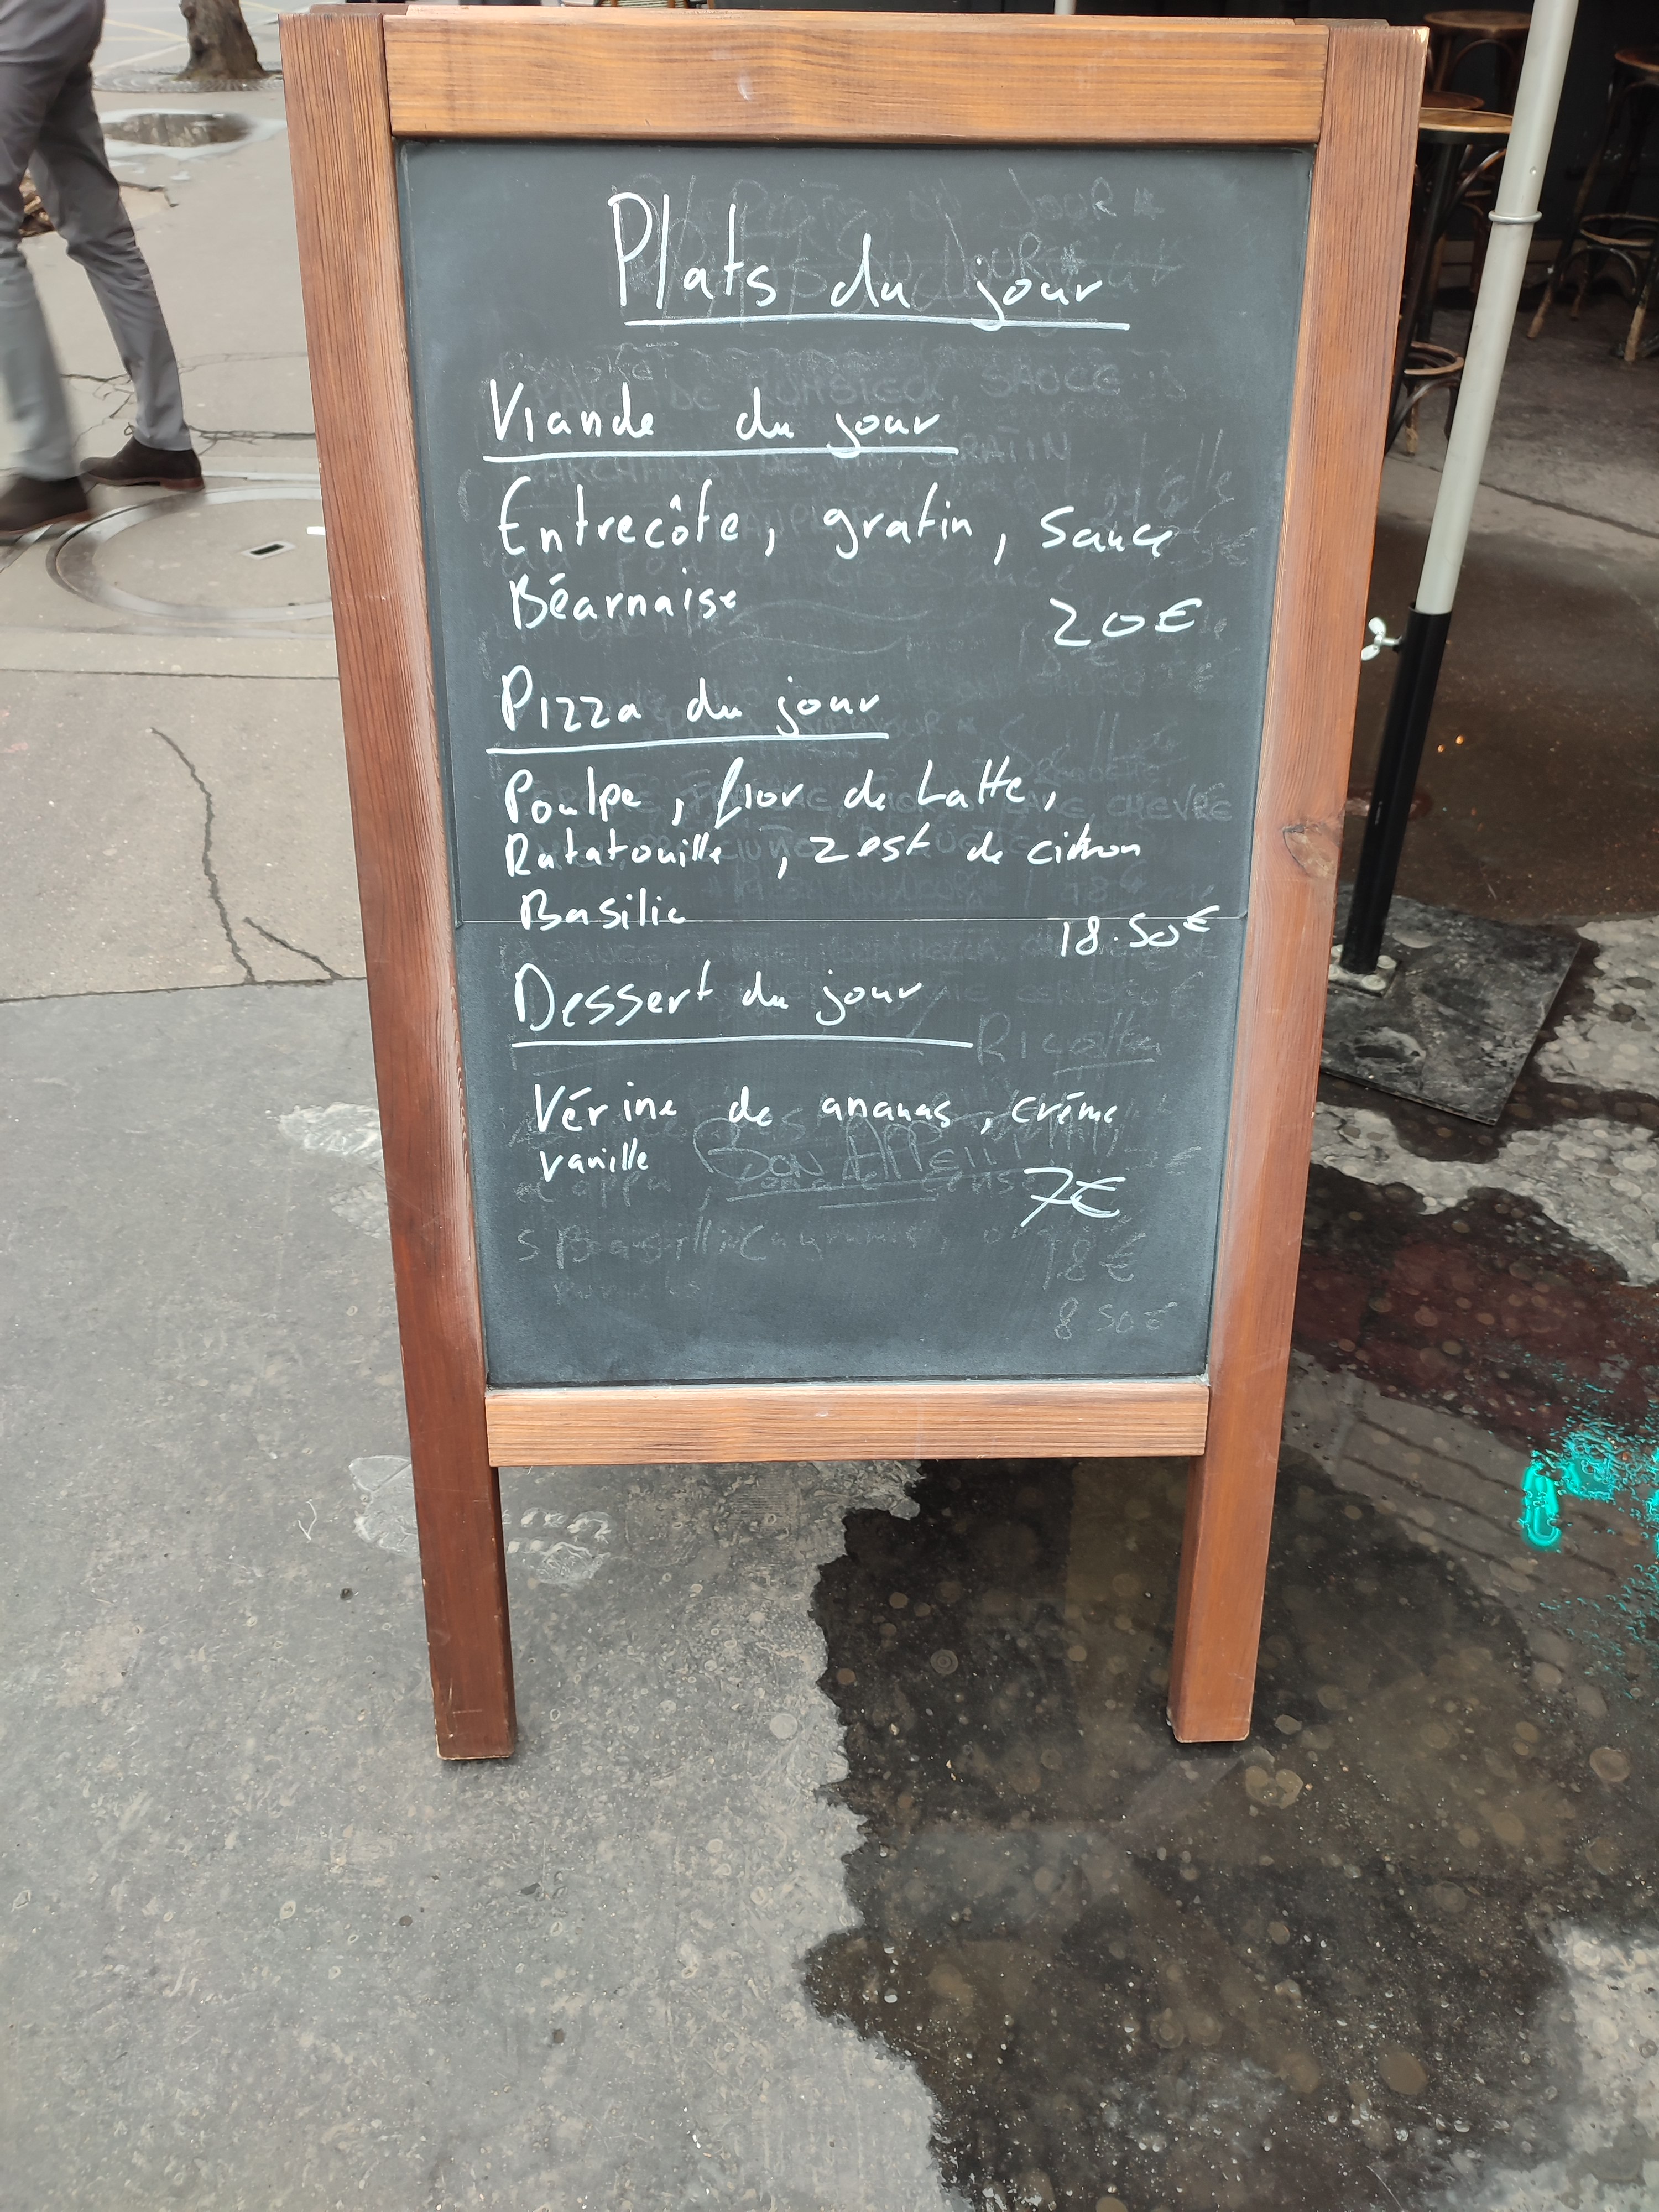 Plats du jour
Viande du jour
Entrecôte, gratin, sauce
Béarnaise 20€
Pizza du jour
Poulpe, fior de Latte,
Ratatouille, zest de citron
Basilic 18.50€
Dessert du jour
Ricotta
Vérine de ananas, créme
vanille
BON APPETIT
7€
18€
8 50€